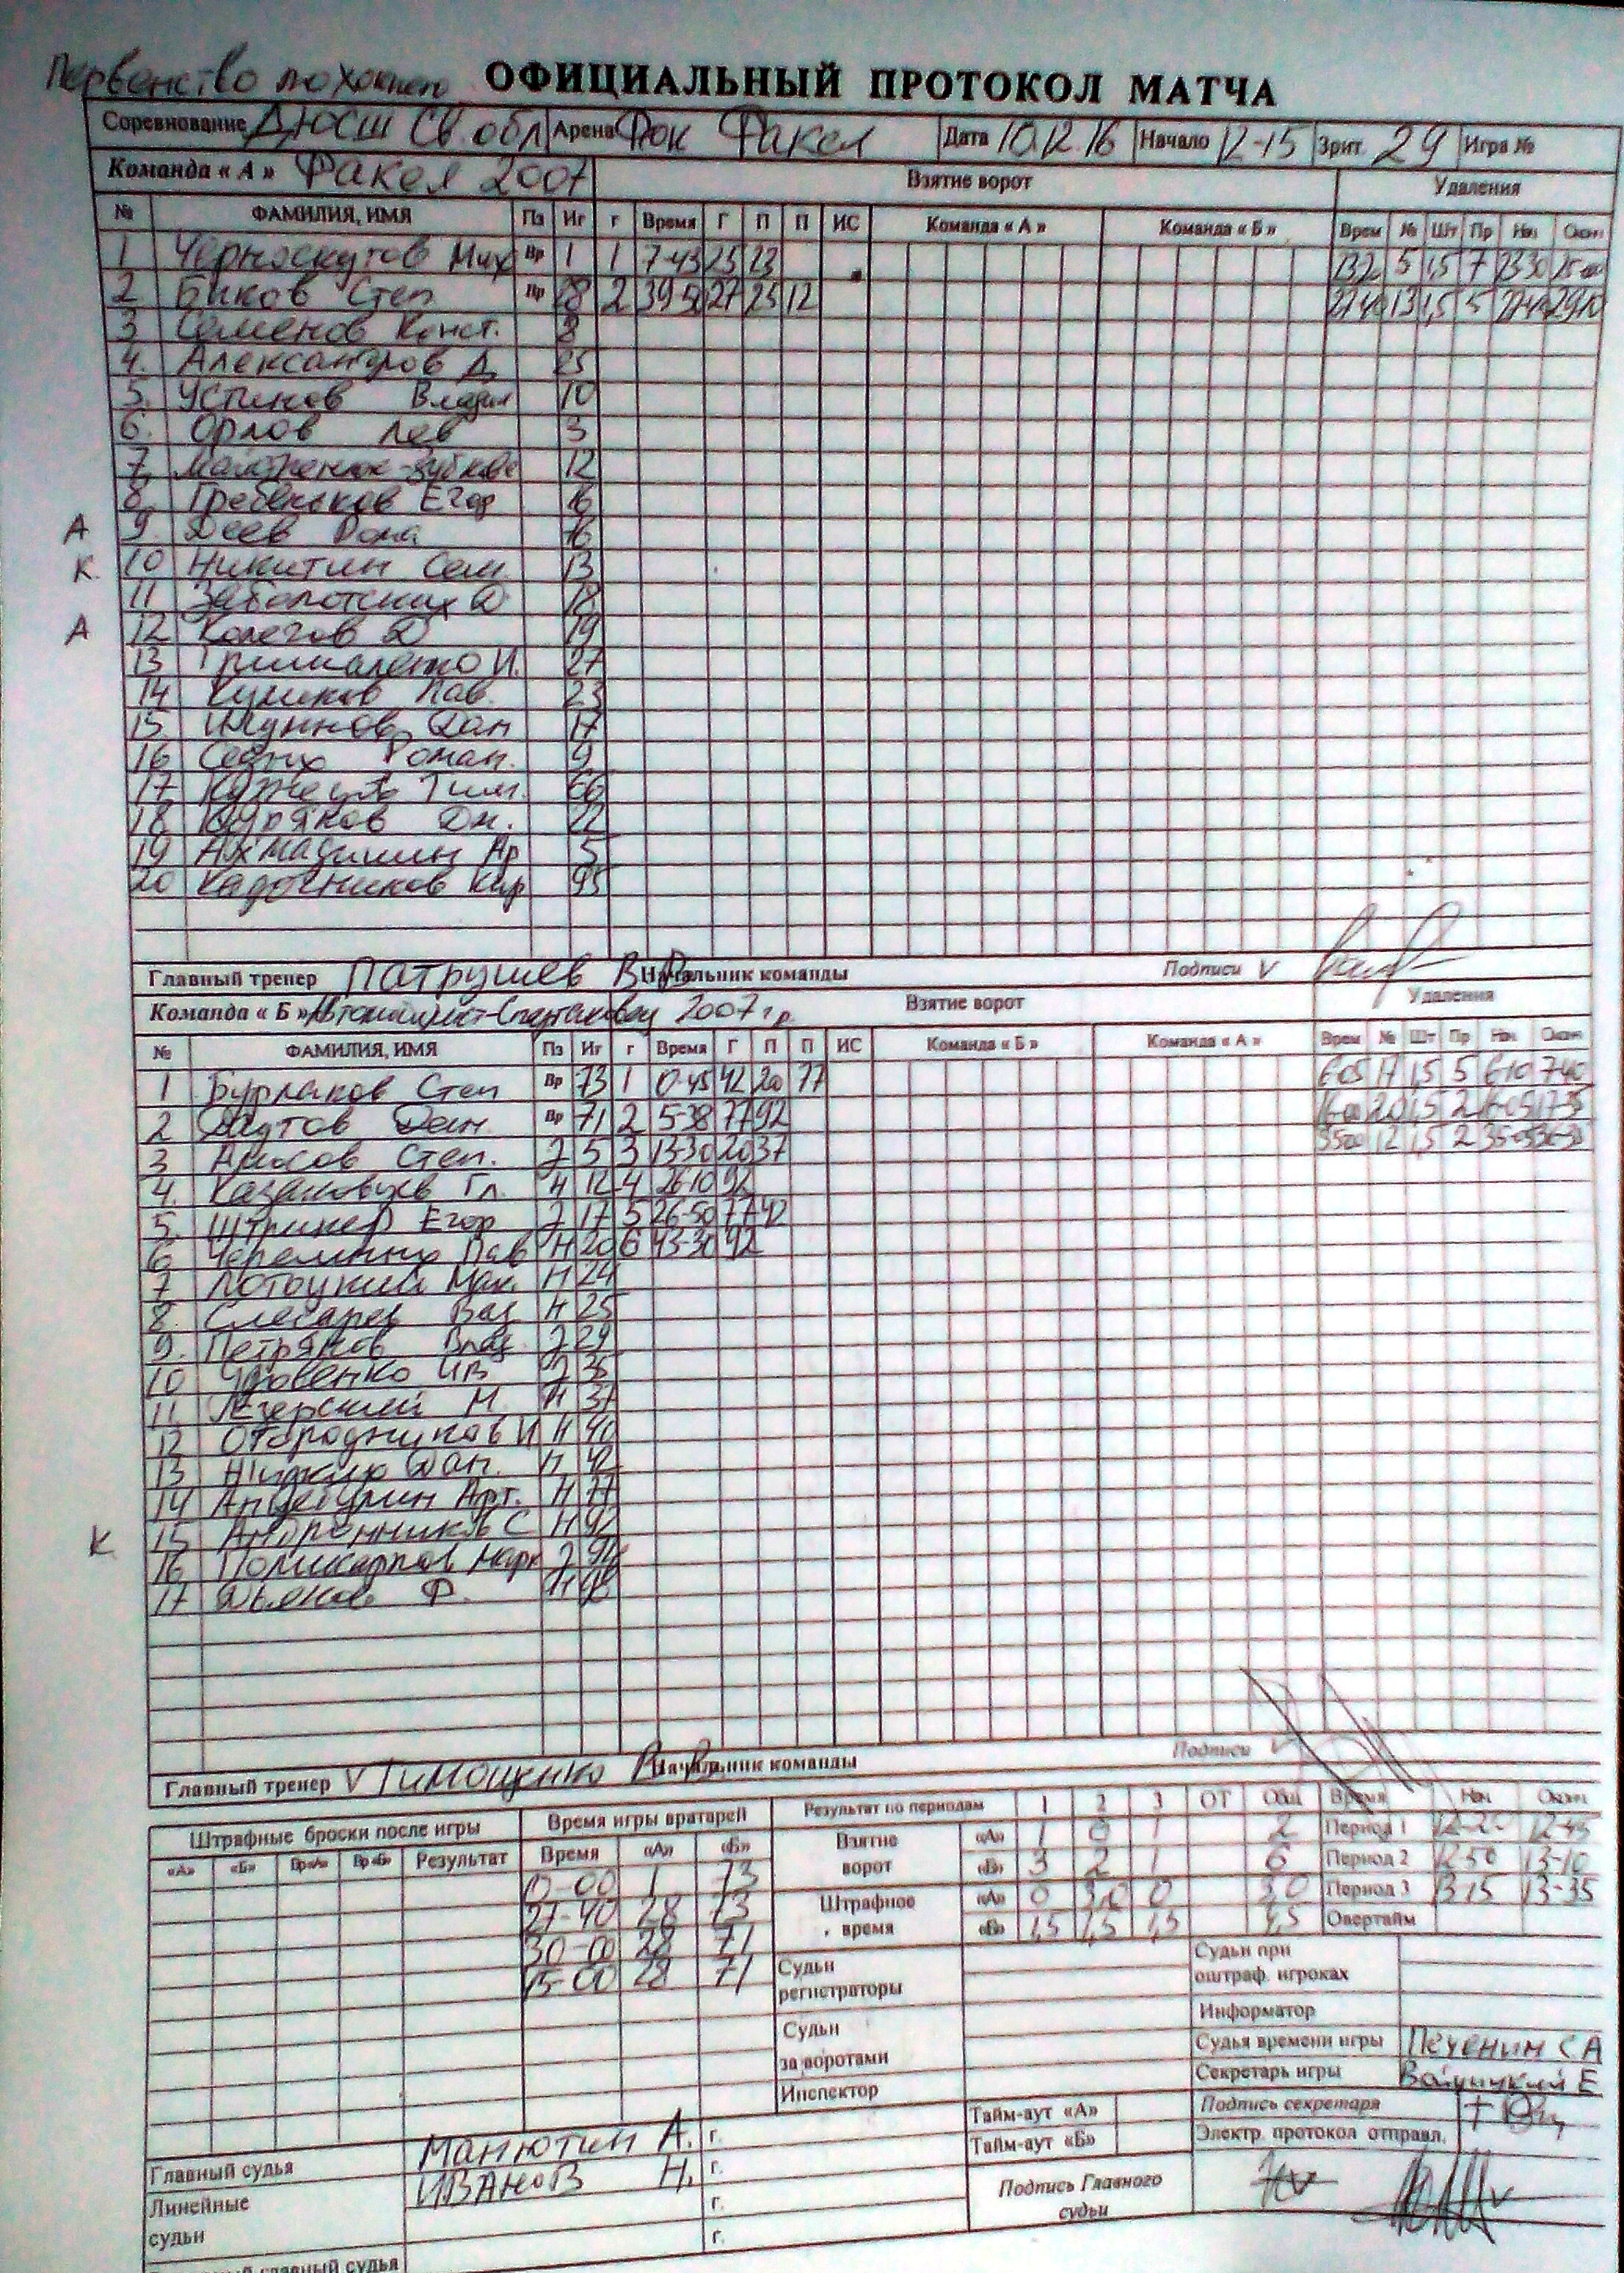 Первенство по хоккею ОФИЦИАЛЬНЫЙ ПРОТОКОЛ МАТЧА
Соревнование ДЮСШ Св. обл Арена Фок Факел Дата 10.12.16 Начало 12-15 Зрит. 29 Игра №
Команда « А » Факел 2007 Взятие ворот Удаления
№ ФАМИЛИЯ, ИМЯ Пз Иг г Время Г П П ИС Команда « А » Команда « Б » Врем № Шт Пр Нач Оконч
1 Черноскутов Мих Вр 1 1 7-43 25 23 5 1,5 7
2 Быков Степ Пр 28 2 39-50 27 25 12 13 1,5 5
3 Семенов Конст. 8
4. Александров Д 25
5. Устинов Владим 10
6. Орлов Лев 3
7 12
8. Гребеньков Егор
А 9. Деев Рома
К. 10 Никитин Сем. 13
11 Заболотских Д 18
А 12 Колегов Д 19
13 И. 27
14 Куликов Пав. 23
15 Дан 17
16 Седых Роман. 9
17 Кузнецов Тим. 66
18 Дм. 22
19 Ахмадишин Ар 5
20 Кадочников Кир 95
Главный тренер Патрушев В. Начальник команды Подписи V
Команда « Б » Автомобилист-Спартаковец 2007 г.р. Взятие ворот Удаления
№ ФАМИЛИЯ, ИМЯ Пз Иг г Время Г П П ИС Команда « Б » Команда « А » Врем № Шт Пр Нач Оконч
1 Бурлаков Степ Вр 73 1 0-45 42 20 77 6-05 17 1,5 5 6-10 7-40
2 Даутов Дан. Вр 71 2 5-38 77 92 16-00 20 1,5 2 16-05 17-35
3 Аносов Степ. 5 3 13-30 20 37 35-00 12 1,5 2 35-05 36-35
4. Гл. Н 12 4 26-10 92
5. Штрикер Егор 17 5 26-50 77 42
6 Черемных Пав Н 20 6 43-30 92
7 Потоцкий Мак. Н 24
8. Слесарев Н 25
9. Петряков Влад. 29
10 Удовенко Ив
11. М. Н 37
12 Огородников И Н 40
13 Дан. Н 42
14 Арт. Н 77
К 15 С Н 92
16 Поликарпов Марк
17 Дьяков Ф. Н
Главный тренер V Тимощенко В.В. Начальник команды Подписи V
Штрафные броски после игры Время игры вратарей Результат по периодам 1 2 3 ОТ Общ Время Нач Оконч
«А» «Б» Вр«А» Вр«Б» Результат Время «А» «Б» Взятие ворот «А» 1 0 1 2 Период 1 12-25 12-45
0-00 1 73 «Б» 3 2 1 6 Период 2 12 50 13-10
21-40 28 73 Штрафное время «А» 0 3,0 0 3,0 Период 3 13 15 13-35
30-00 28 71 «Б» 1,5 1,5 1,5 4,5 Овертайм
28 71 Судьи регистраторы Судьи при оштраф. игроках
Информатор
Судьи за воротами Судья времени игры Печенин С А
Инспектор Секретарь игры Е
Тайм-аут «А» Подпись секретаря
Тайм-аут «Б» Электр. протокол отправл.
Главный судья Манютин А. г.
Линейные судьи Иванов Н. г.
г.
г.
Подпись Главного судьи
главный судья